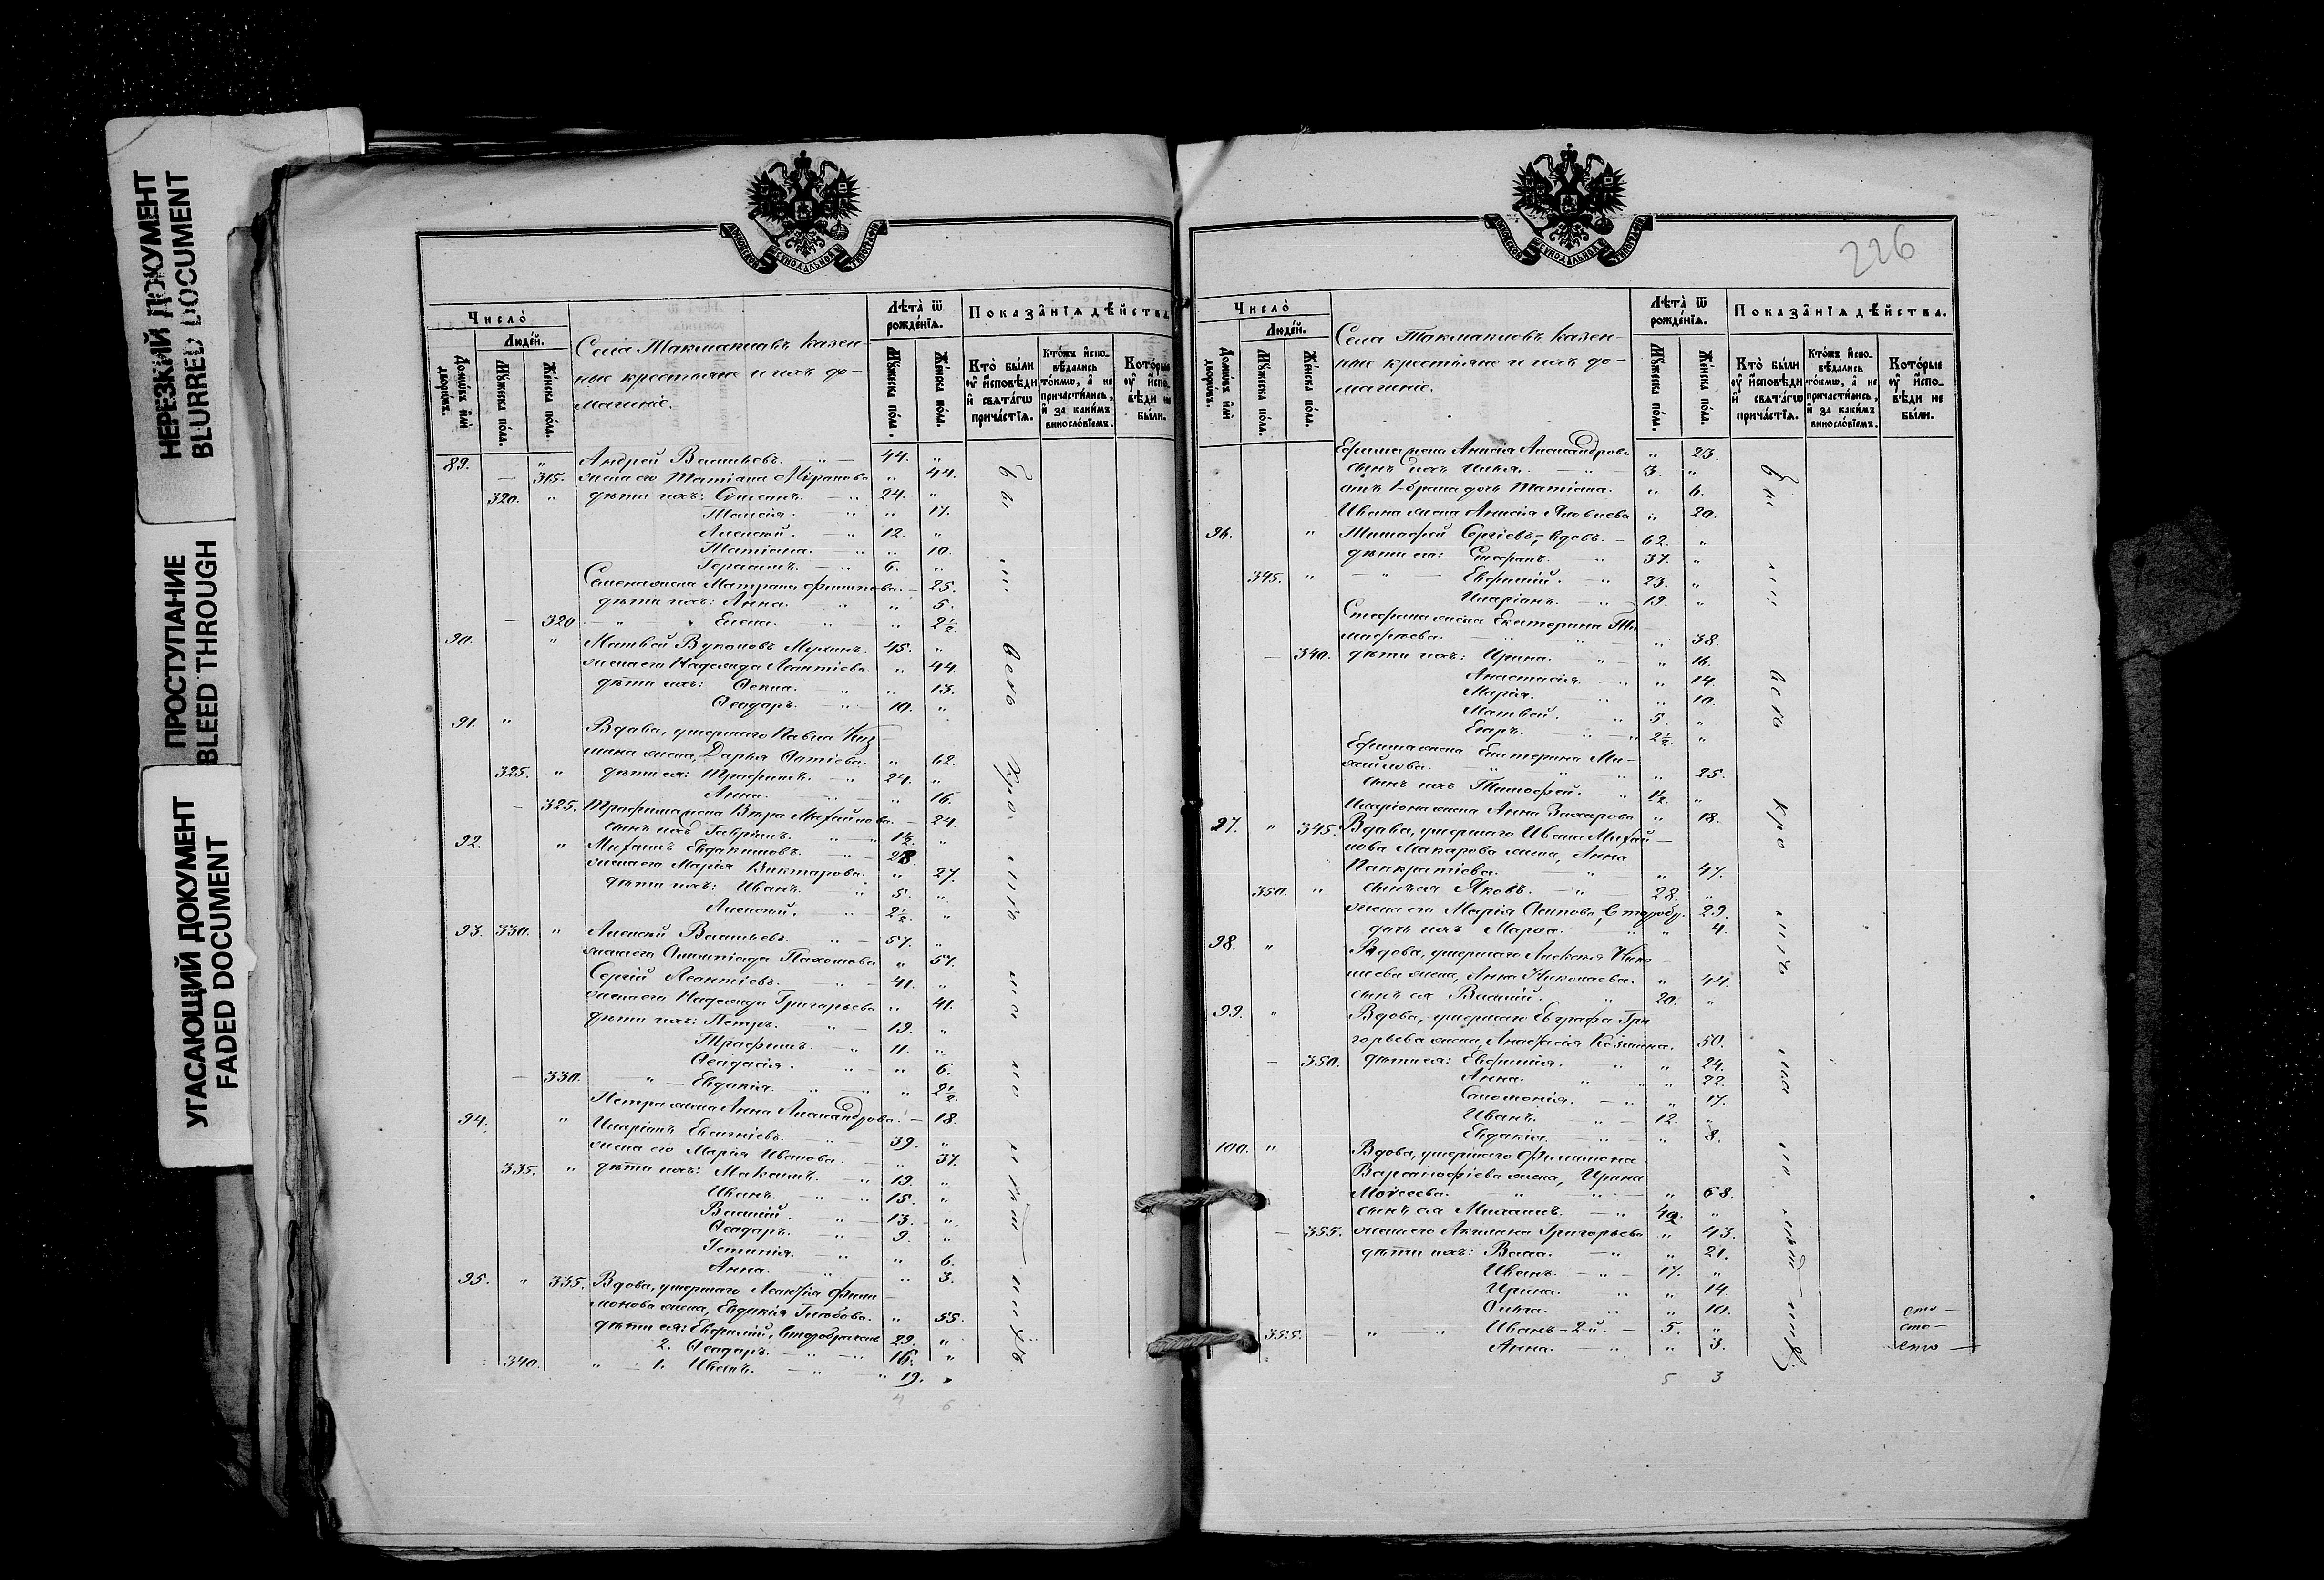 НЕРЕЗКИЙ ДОКУМЕНТ
BLURRED DOCUMENT
ПРОСТУПАНИЕ
BLEED THROUGH
УГАСАЮЩИЙ ДОКУМЕНТ
FADED DOCUMENT
МОСКОВСКОЙ СѴНОДАЛЬНОЙ ТИПОГРАФІИ
Число̀
Людéй.
Домѡ́въ и҆лѝ дворѡ́въ.
Мꙋ́жеска по́лꙋ.
Же́нска по́лꙋ.
Села Такмаклавъ казен-
ные крестьяне и ихъ до-
машніе.
Лѣта̀ ѿ рожде́нїѧ.
Мꙋ́жеска по́лꙋ.
Же́нска по́лꙋ.
Показа̑нїѧ дѣ́йства.
Кто̀ бы́ли ᲂу҆ и҆сповѣди и҆ свѧта́гѡ прича́стїѧ.
Кто́жъ и҆спо-
вѣ́дались то́кмѡ, а҆ не причасти́лись, и҆ за каки́мъ винослѡ́вїемъ.
Кото́рые ᲂу҆ и҆спо-
вѣди не бы́ли.
89. — " Андрей Васильевъ. — " — 44. "
— 315. жена его Татіана Миронова " 44.
320. " дѣти ихъ: Симеонъ. — " 24. "
Таисія. — " " 17.
Алексѣй. — " 12. "
Татіана. " " 10.
Герасимъ. — " 6. "
Семена жена Матрона Филиппова. — 25.
дѣти ихъ: Анна. " " 5.
— 320 — " — " Елена. " — " 2½.
90. " Матвей Вуколовъ Мухинъ. 45. "
жена его Надежда Леонтіева. " 44.
дѣти ихъ: Ѳекла. " " 13.
Ѳеодоръ. " — 10. "
91. " Вдова, умершаго Павла Куз-
мина жена, Дарья 62.
325. " дѣти ея: Трофимъ. — " 24. "
Анна. — " 16.
— 325. Трофима жена Вѣра Михайлова. — 24.
сынъ ихъ Гавріилъ. " 1½. "
92. " Михаилъ Евдокимовъ. — " 28. "
жена его Марія Викторова. " 27.
дѣти ихъ: Иванъ. " 5. "
Алексѣй. " 2½. "
93. 330. " Алексѣй Васильевъ. " — 57. "
жена его Олимпіада Пахомова " 57.
Сергій Леонтіевъ. " — 41. "
жена его Надежда Григорьева " 41.
дѣти ихъ: Петръ. — " 19. "
Трофимъ. — " 11. "
Ѳеодосія. " — " 6.
— 330. " — Евдокія. " — " 2½.
Петра жена Анна Александрова. — 18.
94. " Иларіонъ — " — 39. "
жена его Марія Иванова. — " 37.
335. " дѣти ихъ: Максимъ. — " 19. "
Иванъ. — " — 15. "
Василій. " — 13. "
Ѳеодоръ. " — 9. "
Устинія. — " " 6.
Анна. — " 3.
95. " 335. Вдова, умершаго Фили-
монова жена, Евдокія Глѣбова. " 55.
дѣти ея: Евфимій, второбрачный 29. "
2. Ѳеодоръ. — " 16. "
340. " 1. Иванъ. — " — " 19. "
4 6
Бы ли Всѣ
226
МОСКОВСКОЙ СѴНОДАЛЬНОЙ ТИПОГРАФІИ
Число̀
Людéй.
Домѡ́въ и҆лѝ дворѡ́въ.
Мꙋ́жеска по́лꙋ.
Же́нска по́лꙋ.
Села Такмакловъ казен-
ные крестьяне и ихъ до-
машніе.
Лѣта̀ ѿ рожде́нїѧ.
Мꙋ́жеска по́лꙋ.
Же́нска по́лꙋ.
Показа̑нїѧ дѣ́йства.
Кто̀ бы́ли ᲂу҆ и҆сповѣди и҆ свѧта́гѡ прича́стїѧ.
Кто́жъ и҆спо-
вѣ́дались то́кмѡ, а҆ не причасти́лись, и҆ за каки́мъ винослѡ́вїемъ.
Кото́рые ᲂу҆ и҆спо-
вѣди не бы́ли.
Ефима жена Анисія Александрова " 23.
сынъ ихъ Илья. — " — 3. "
отъ 1-брака дочь Татіана. " 6.
Ивана жена Анисія Яковлева " 20.
96. " Тимофей Сергіевъ, — вдовъ. — 62. "
дѣти его: Стефанъ. " 37. "
345. " — " — Евфимій. — " 23. "
Иларіонъ. — " 19. "
Стефана жена Екатерина Ти-
мофѣева. — " " 38.
— 340. дѣти ихъ: Ирина. " — " 16.
Анастасія. — " " 14.
Марія. " " 10.
Матвей. " 5. "
Егоръ. " — " 2½. "
Ефима жена Екатерина Ми-
хайлова. " " 25.
сынъ ихъ Тимофей. — " 1½. "
Иларіона жена Анна Захарова " 18.
97. " 345. Вдова, умершаго Ивана Михай-
лова Макарова жена, Анна
Панкратіева. — " " 47.
350. " сынъ ея Яковъ. — " — 28. "
жена его Марія Осипова, второбр. 29.
дочь ихъ Марѳа. " " 4.
98. " Вдова, умершаго Алексѣя Нико-
лаева жена, Анна Николаева. " 44.
сынъ ея Василій. " 20. "
99. " Вдова, умершаго Евграфа Гри-
горьева жена, Анастасія Козмина. 50.
— 350. дѣти ея: Евфимія. " " 24.
Анна. " " 22.
Соломонія. — " " 17.
Иванъ. — " — 12. "
Евдокія. " — " 8.
100. " Вдова, умершаго Филимона
Варсонофіева жена, Ирина
Моѵсеева. — " " 68.
сынъ ея Михаилъ. — " 42. "
— 355. жена его Акилина Григорьева " 43.
дѣти ихъ: Васса. — " " 21.
Иванъ. — " — 17. "
Ирина. " " 14.
Ольга. — " " 10.
355. — " — " Иванъ — 2-й. — 5. "
Анна. — " " 3.
5 3
Бы ли Всѣ кро